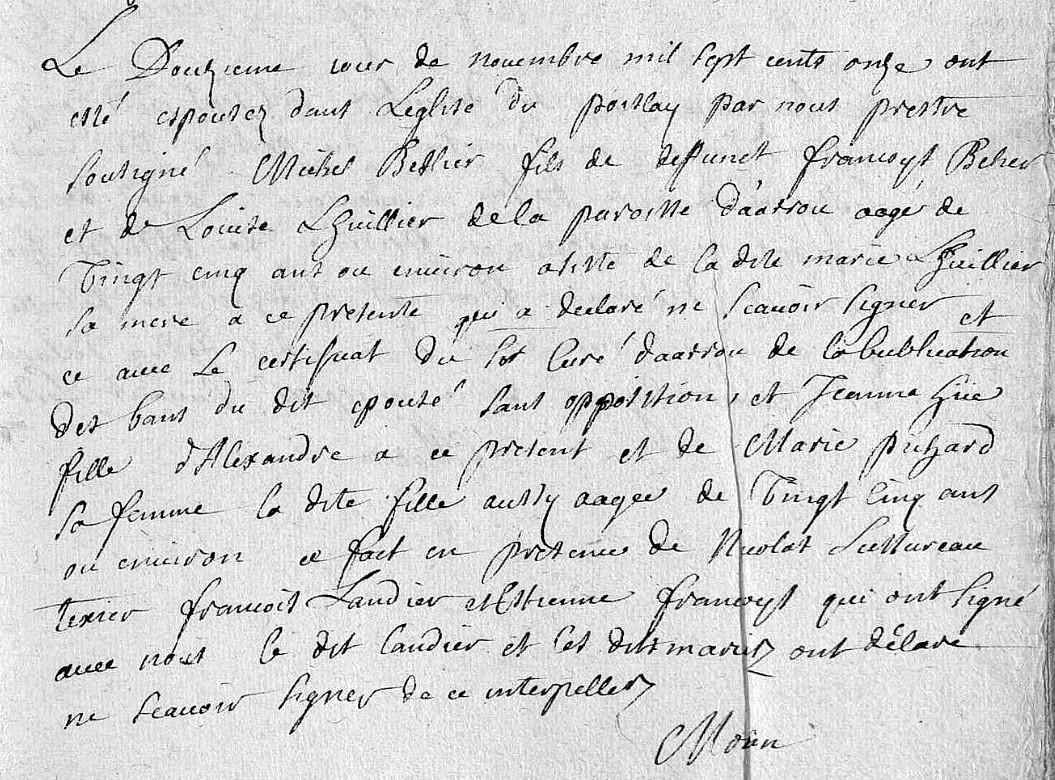 Le Douzieme iour de novembre mil sept cents onze ont
esté espousez dans Leglise du poislay par nous prestre
soussigné Michel Bellier fils de deffunct francoys Belier
et de Louise Lhuillier de la paroisse d'aarrou aagé de
Vingt cinq ans ou environ assisté de la dite marie Lhuillier
sa mere a ce presente qui a declaré ne scauoir signer et
ce auec Le certificat du Sr Curé d'aarrou de la bublication
des bans du dit epousé sans opposition, et Jeanne hüe
fille d'Alexandre a ce present et de Marie
sa femme la dite fille aussy aagee de Vingt Cinq ans
ou environ ce fait en presence de Nicolas
texier francois Landier et Estienne francoys qui ont signé
auec nous le dit Landier et les dits mariez ont délaré
ne scauoir signer de ce interpellez